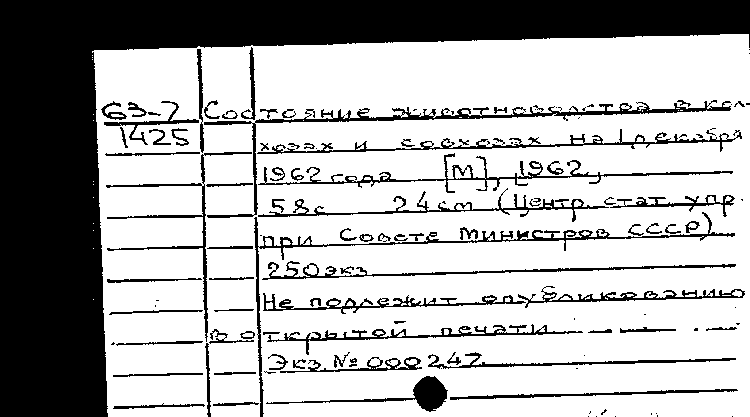 63-7 Состояние животноводства в кол-
1425 хозах и совхозах на 1 декабря
1962 года [М], 1962,
58с 24см (Центр. стат упр.
при Совете Министров СССР)
250экз
Не подлежит опубликованию
в открытой печати
Экз. № 000247.